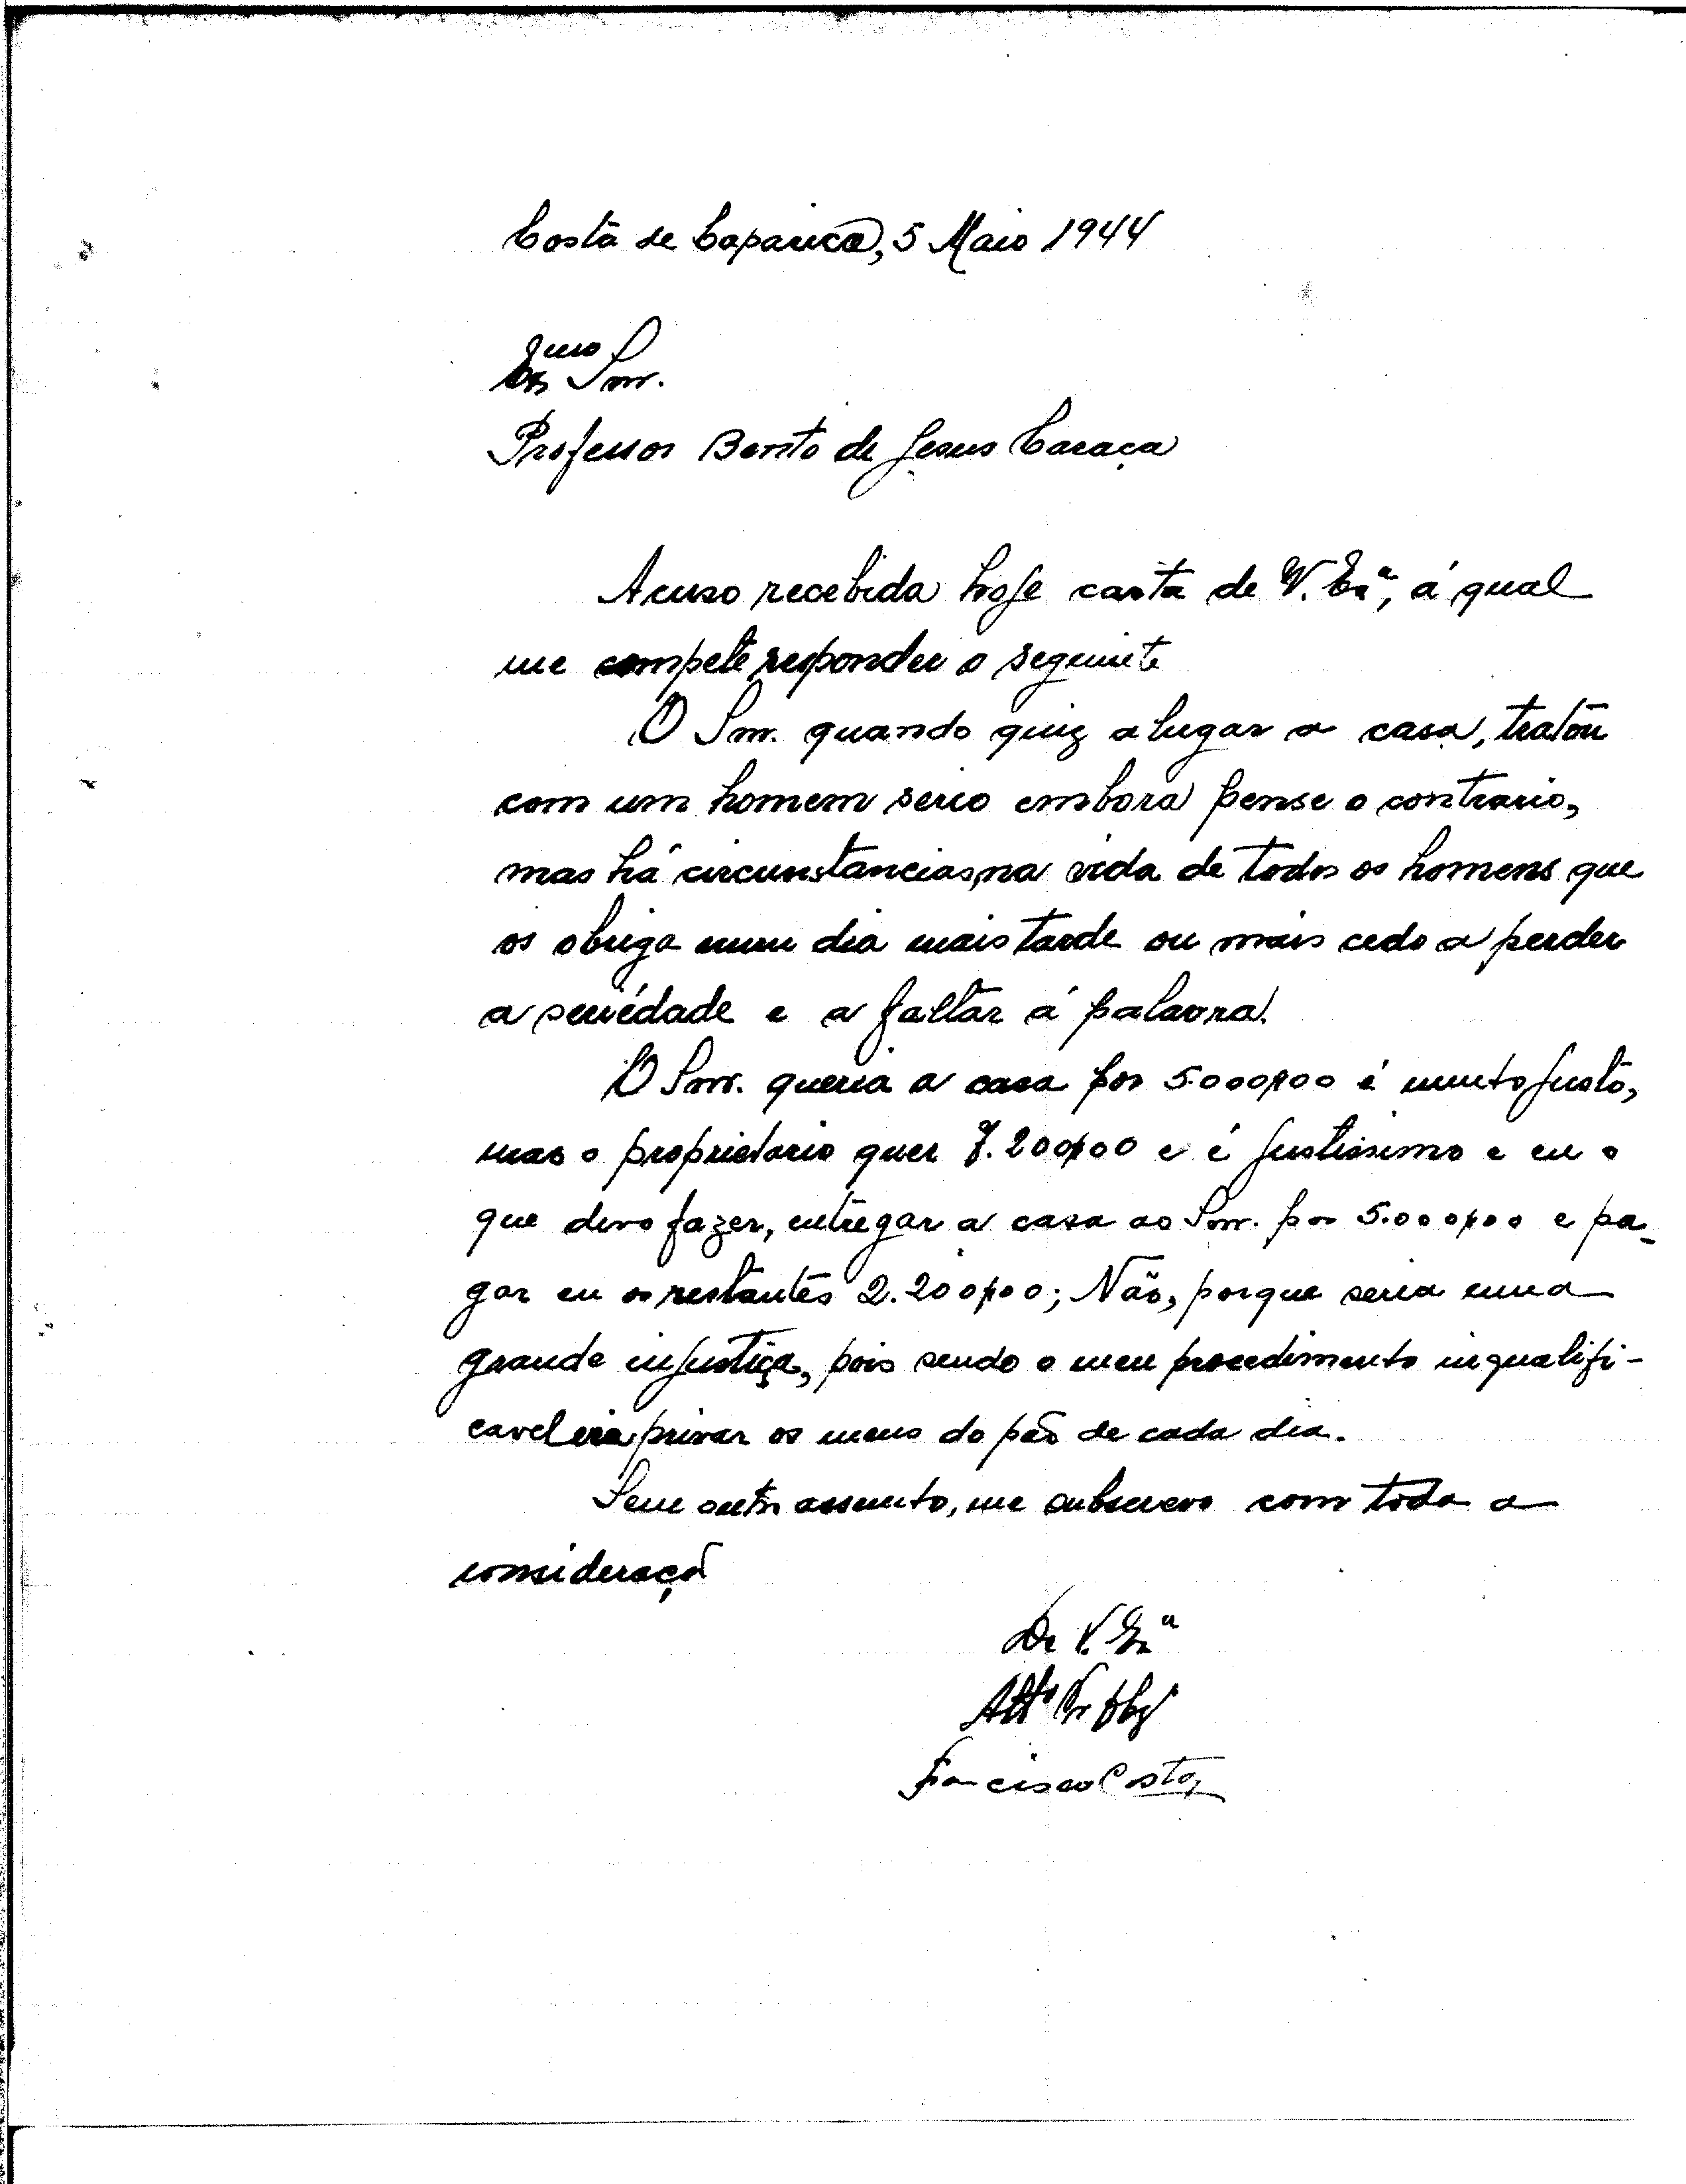 Costa de Caparica, 5 Maio 1944
Exmo Snr.
Professor Bento de Jesus Caraça
Acuso recebida hoje carta de V. Exª, á qual
me compete responder o seguinte
O Snr. quando quiz alugar a casa, tratou
com um homem serio embora pense o contrario,
mas há circunstancias, na vida de todos os homens que
os obriga num dia mais tarde ou mais cedo a perder
a seriedade e a faltar á palavra.
O Snr. queria a casa por 5.000$00 é muito justo,
mas o proprietario quer 7.200$00 e é justissimo e eu o
que devo fazer, entregar a casa ao Snr. por 5.000$00 e pa-
gar eu os restantes 2.200$00; Não, porque seria uma
grande injustiça, pois sendo o meu procedimento inqualifi-
cavel iria privar os meus do pão de cada dia.
Sem outro assunto, me subscrevo com toda a
consideração
De V. Exª
Attº Vr Obgº
Francisco Costa